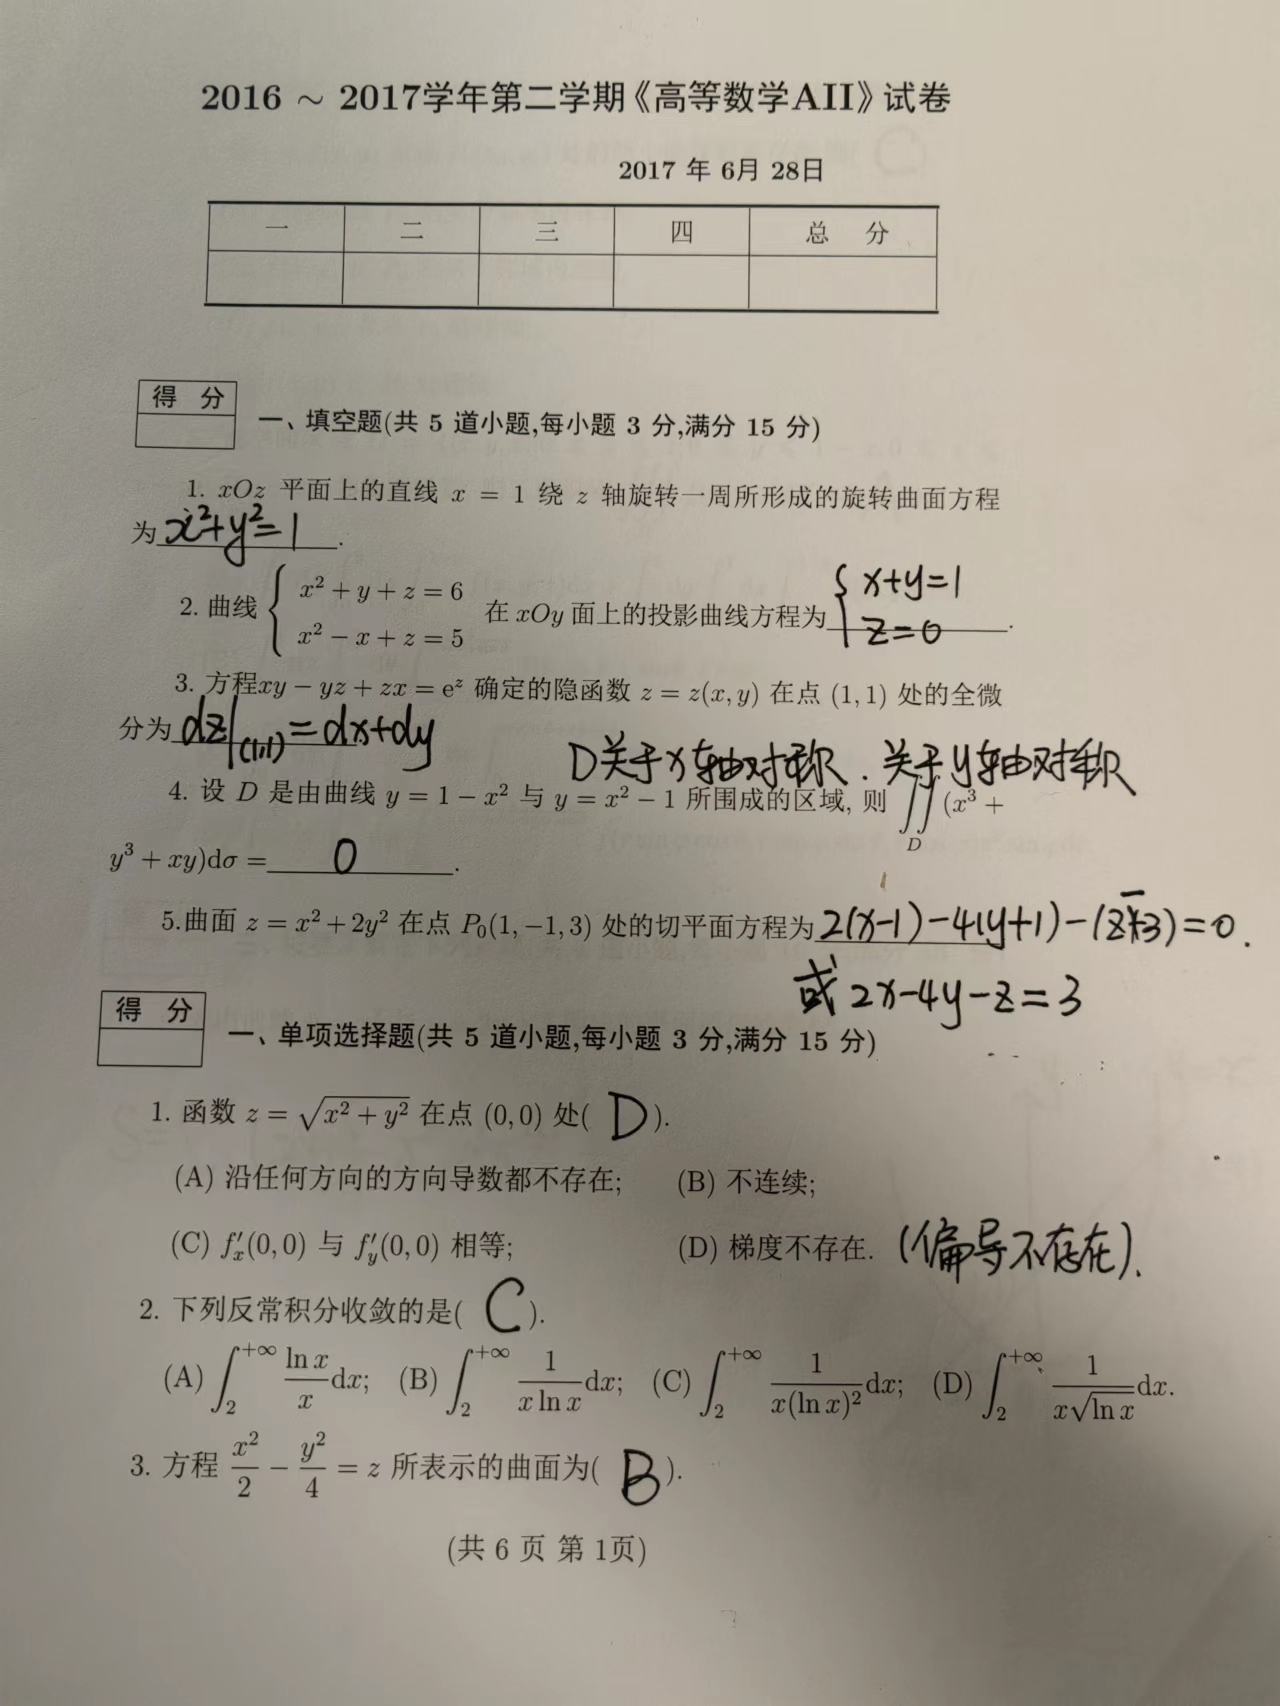 2016 ~ 2017学年第二学期《高等数学AII》试卷
2017 年 6月 28日
一 二 三 四 总 分
得 分
一、填空题(共 5 道小题,每小题 3 分,满分 15 分)
1. xOz 平面上的直线 x = 1 绕 z 轴旋转一周所形成的旋转曲面方程
为 x²+y²=1 .
2. 曲线 { x² + y + z = 6 在 xOy 面上的投影曲线方程为 { x+y=1
x² − x + z = 5 z=0 .
3. 方程xy − yz + zx = eᶻ 确定的隐函数 z = z(x, y) 在点 (1, 1) 处的全微
分为 dz|(1,1) = dx+dy
D关于x轴对称. 关于y轴对称
4. 设 D 是由曲线 y = 1 − x² 与 y = x² − 1 所围成的区域, 则 ∬D (x³ +
y³ + xy)dσ = 0 .
5.曲面 z = x² + 2y² 在点 P₀(1, −1, 3) 处的切平面方程为 2(x-1)-4(y+1)-(z-3)=0.
或 2x-4y-z=3
得 分
一、单项选择题(共 5 道小题,每小题 3 分,满分 15 分)
1. 函数 z = √(x² + y²) 在点 (0, 0) 处( D ).
(A) 沿任何方向的方向导数都不存在; (B) 不连续;
(C) f′ₓ(0, 0) 与 f′y(0, 0) 相等; (D) 梯度不存在. (偏导不存在).
2. 下列反常积分收敛的是( C ).
(A) ∫₂^{+∞} ln x/x dx; (B) ∫₂^{+∞} 1/(x ln x) dx; (C) ∫₂^{+∞} 1/(x(ln x)²) dx; (D) ∫₂^{+∞} 1/(x√(ln x)) dx.
3. 方程 x²/2 − y²/4 = z 所表示的曲面为( B ).
(共 6 页 第 1页)